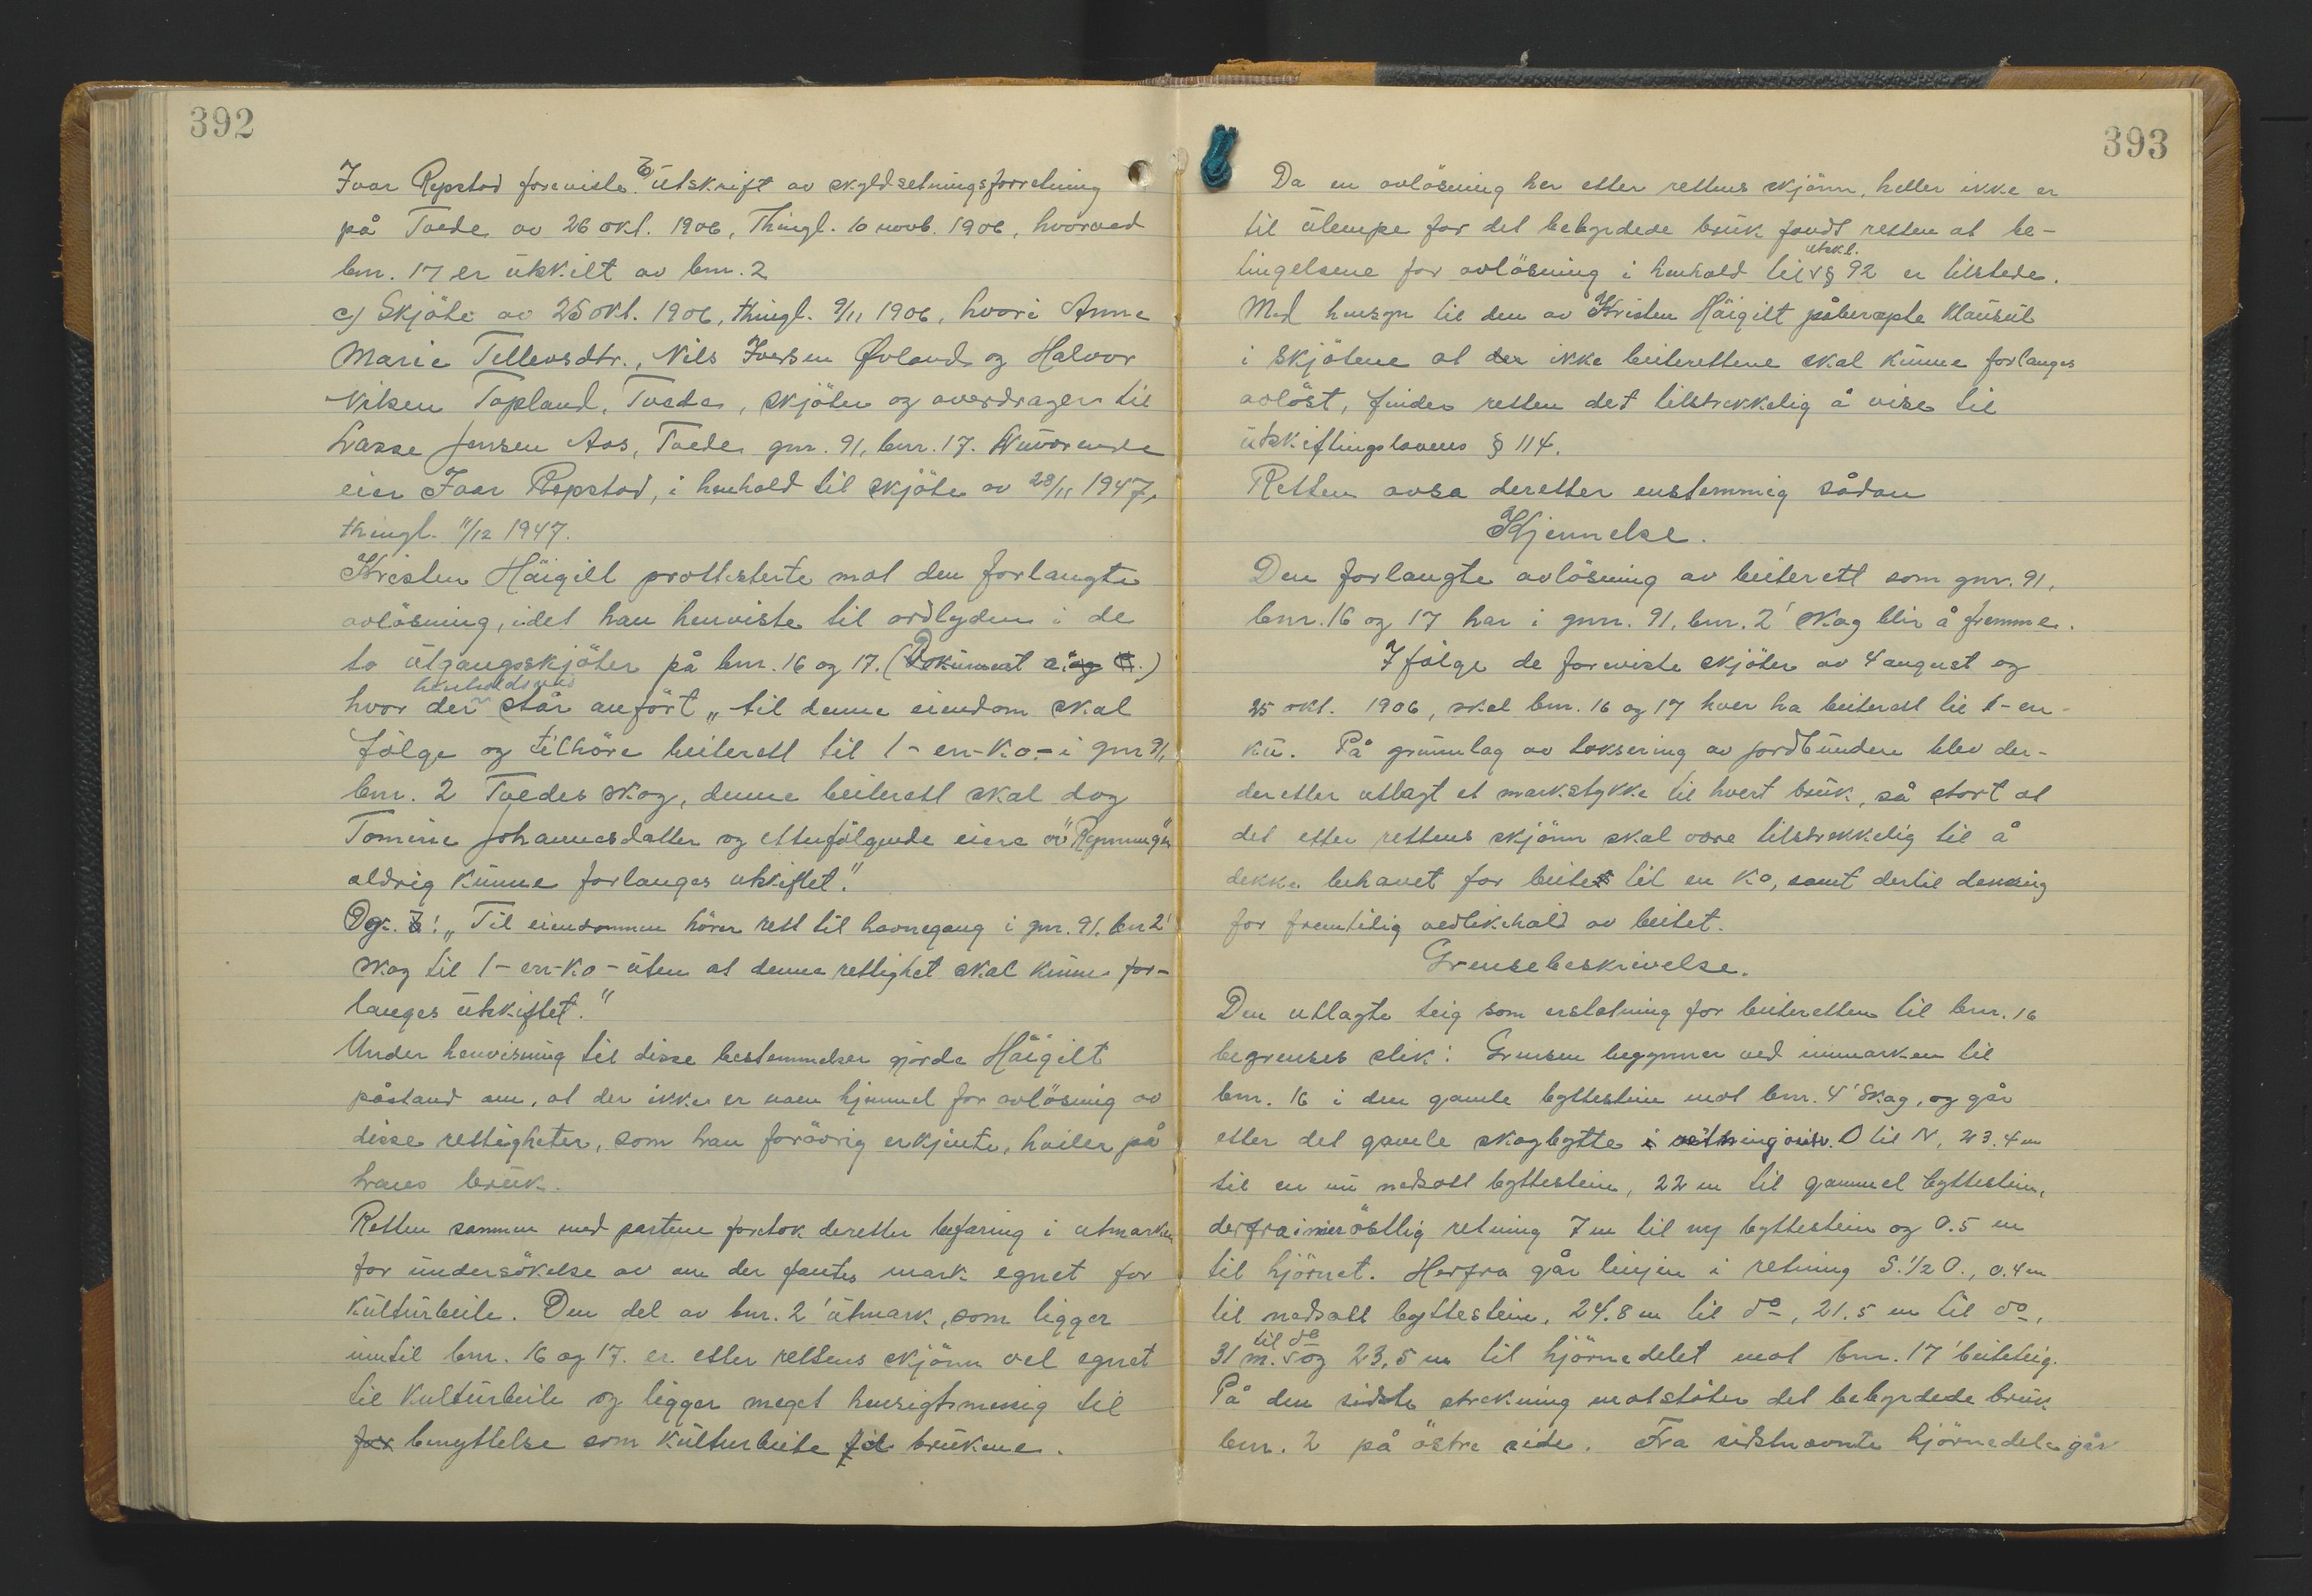 392
Ivar Repstad foreviste b) Utskrift av skyldsetningsforretning
på Tvede av 26 okt. 1906, Thingl. 10 novb. 1906, hvorved
bnr. 17 er utskilt av bnr. 2
c) Skjöte av 25 okt. 1906, thingl. 9/11 1906, hvori Anne
Marie Tellevsdtr., Nils Iversen Øvland og Halvor
Nilsen Topland, Tvede, skjöter og overdrager til
Lasse Jensen Aas, Tvede gnr. 91, bnr. 17. Nuværende
eier Ivar Repstad, i henhold til skjöte av 28/11 1947,
thingl. 11/12 1947.
Kristen Häigilt prottesterte mot den forlangte
avlösning, idet han henviste til ordlyden i de
to utgangsskjöter på bnr. 16 og 17. (Dokument a og c.)
hvor der henholdsvis står anfört „til denne eiendom skal
fölge og tilhöre beiterett til 1-en-ko- i gnr 91,
bnr. 2 Tvedes skog, denne beiterett skal dog
Tomine Johannesdatter og etterfölgende eiere av "Rymning"
aldrig kunne forlanges utskiftet."
Og: „Til eiendommen hörer rett til havnegang i gnr. 91. bnr 2'
skog til 1-en-ko-uten at denne rettighet skal kunne for-
langes utskiftet."
Under henvisning til disse bestemmelser gjorde Häigilt
påstand om, at der ikke er noen hjemmel for avlösning av
disse rettigheter, som han forövrig erkjente, hviler på
hans bruk.
Retten sammen med partene foretok deretter befaring i utmarken
for undersökelse av om der fantes mark egnet for
Kulturbeite. Den del av bnr. 2' utmark, som ligger
inntil bnr. 16 og 17. er etter rettens skjönn vel egnet
til Kulturbeite og ligger meget hensigtsmessig til
for benyttelse som kulturbeite til brukene.
393
Da en avlösning her etter rettens skjönn, heller ikke er
til ulempe for det bebyrdede bruk fandt retten at be-
tingelsene for avlösning i henhold til utskl. § 92 er tilstede.
Med hensyn til den av Kristen Häigilt påberopte klausul
i skjötene at der ikke beiterettene skal kunne forlanges
avlöst, finder retten det tilstrekkelig å vise til
utskiftingslovens § 114.
Retten avsa deretter enstemmig sådan
Kjennelse.
Den forlangte avlösning av beiterett som gnr. 91,
bnr. 16 og 17 har i gnr. 91, bnr. 2' skog blir å fremme.
Ifölge de foreviste skjöter av 4 august og
25 okt. 1906, skal bnr. 16 og 17 hver ha beiterett til 1-en-
ku. På grunnlag av taksering av jordbunden blev der-
deretter utlagt et markstykke til hvert bruk, så stort at
det etter rettens skjönn skal være tilstrekkelig til å
dekke behovet for beite til en ko, samt dertil dekning
for fremtidig vedlikehold av beitet.
Grensebeskrivelse.
Den utlagte teig som erstatning for beiteretten til bnr. 16
begrenses slik: Grensen begynner ved innmarken til
bnr. 16 i den gamle byttestein mot bnr. 4' Skog, og går
etter det gamle skogbytte i retning O til N, 23.4 m
til en nu nedsatt byttestein, 22 m til gammel byttestein,
derfra i mer östlig retning 7 m til ny byttestein og 0.5 m
til hjörnet. Herfra går linjen i retning S. 1/2 O., 0.4 m
til nedsatt byttestein, 24.8 m til do, 21.5 m til do,
31 m. til do og 23,5 m til hjörnedelet mot bnr. 17' beiteteig.
På den sidste strekning motstöter det bebyrdede bruk
bnr. 2 på östre side. Fra sidstnevnte hjörnedele går